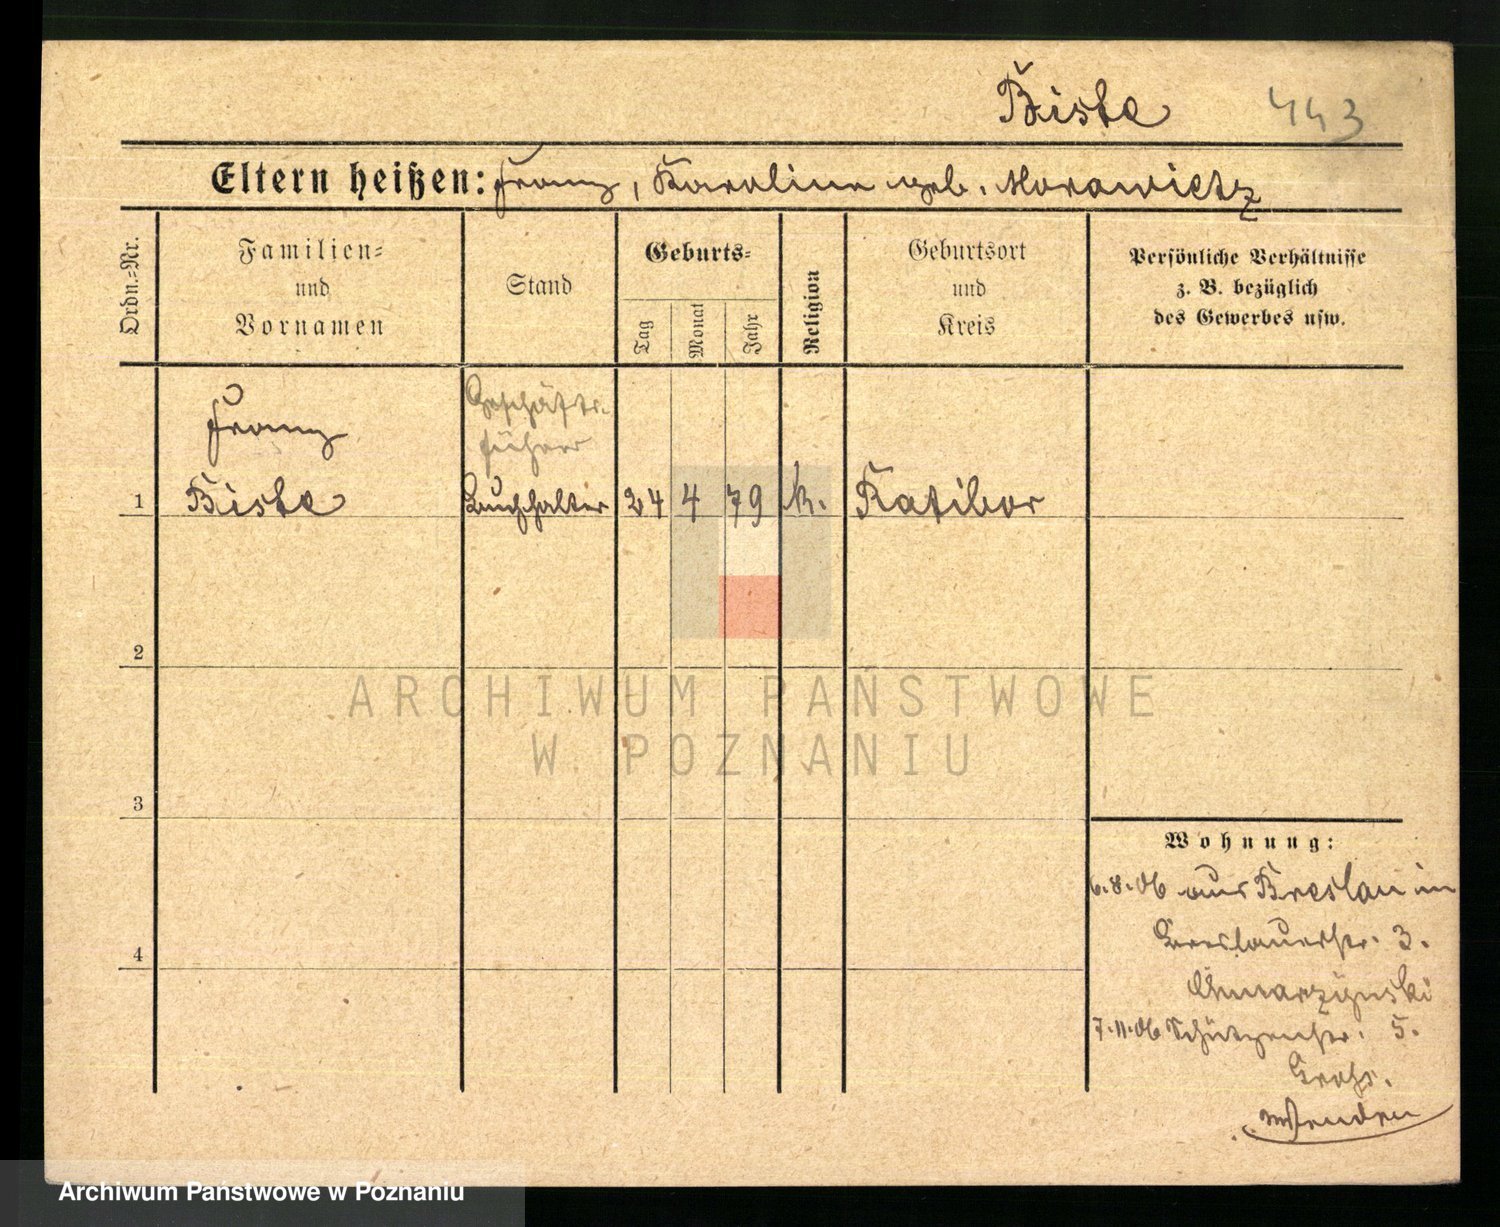 Biste 443
Eltern heißen: Franz, Karoline geb. Morawietz
Ordn.-Nr.
Familien-
und
Vornamen
Stand
Geburts-
Tag
Monat
Jahr
Religion
Geburtsort
und
Kreis
Persönliche Verhältnisse
z. B. bezüglich
des Gewerbes usw.
Franz
Geschäfts-
führer
1 Biste Buchhalter 24 4 79 k. Ratibor
2
3
4
ARCHIWUM PAŃSTWOWE
W POZNANIU
Wohnung:
6.8.06 aus Breslau in
Breslauerstr. 3.
7.11.06 Schützenstr. 5.
Archiwum Państwowe w Poznaniu